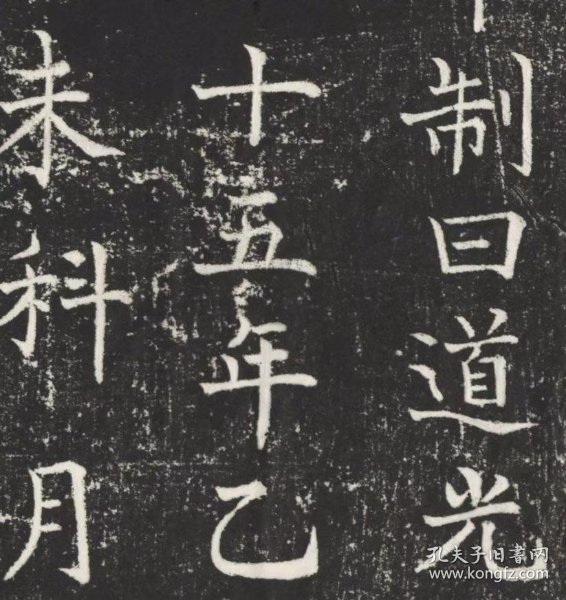 制曰道光
十五年乙
未科月
孔夫子旧書网
www.kongfz.com